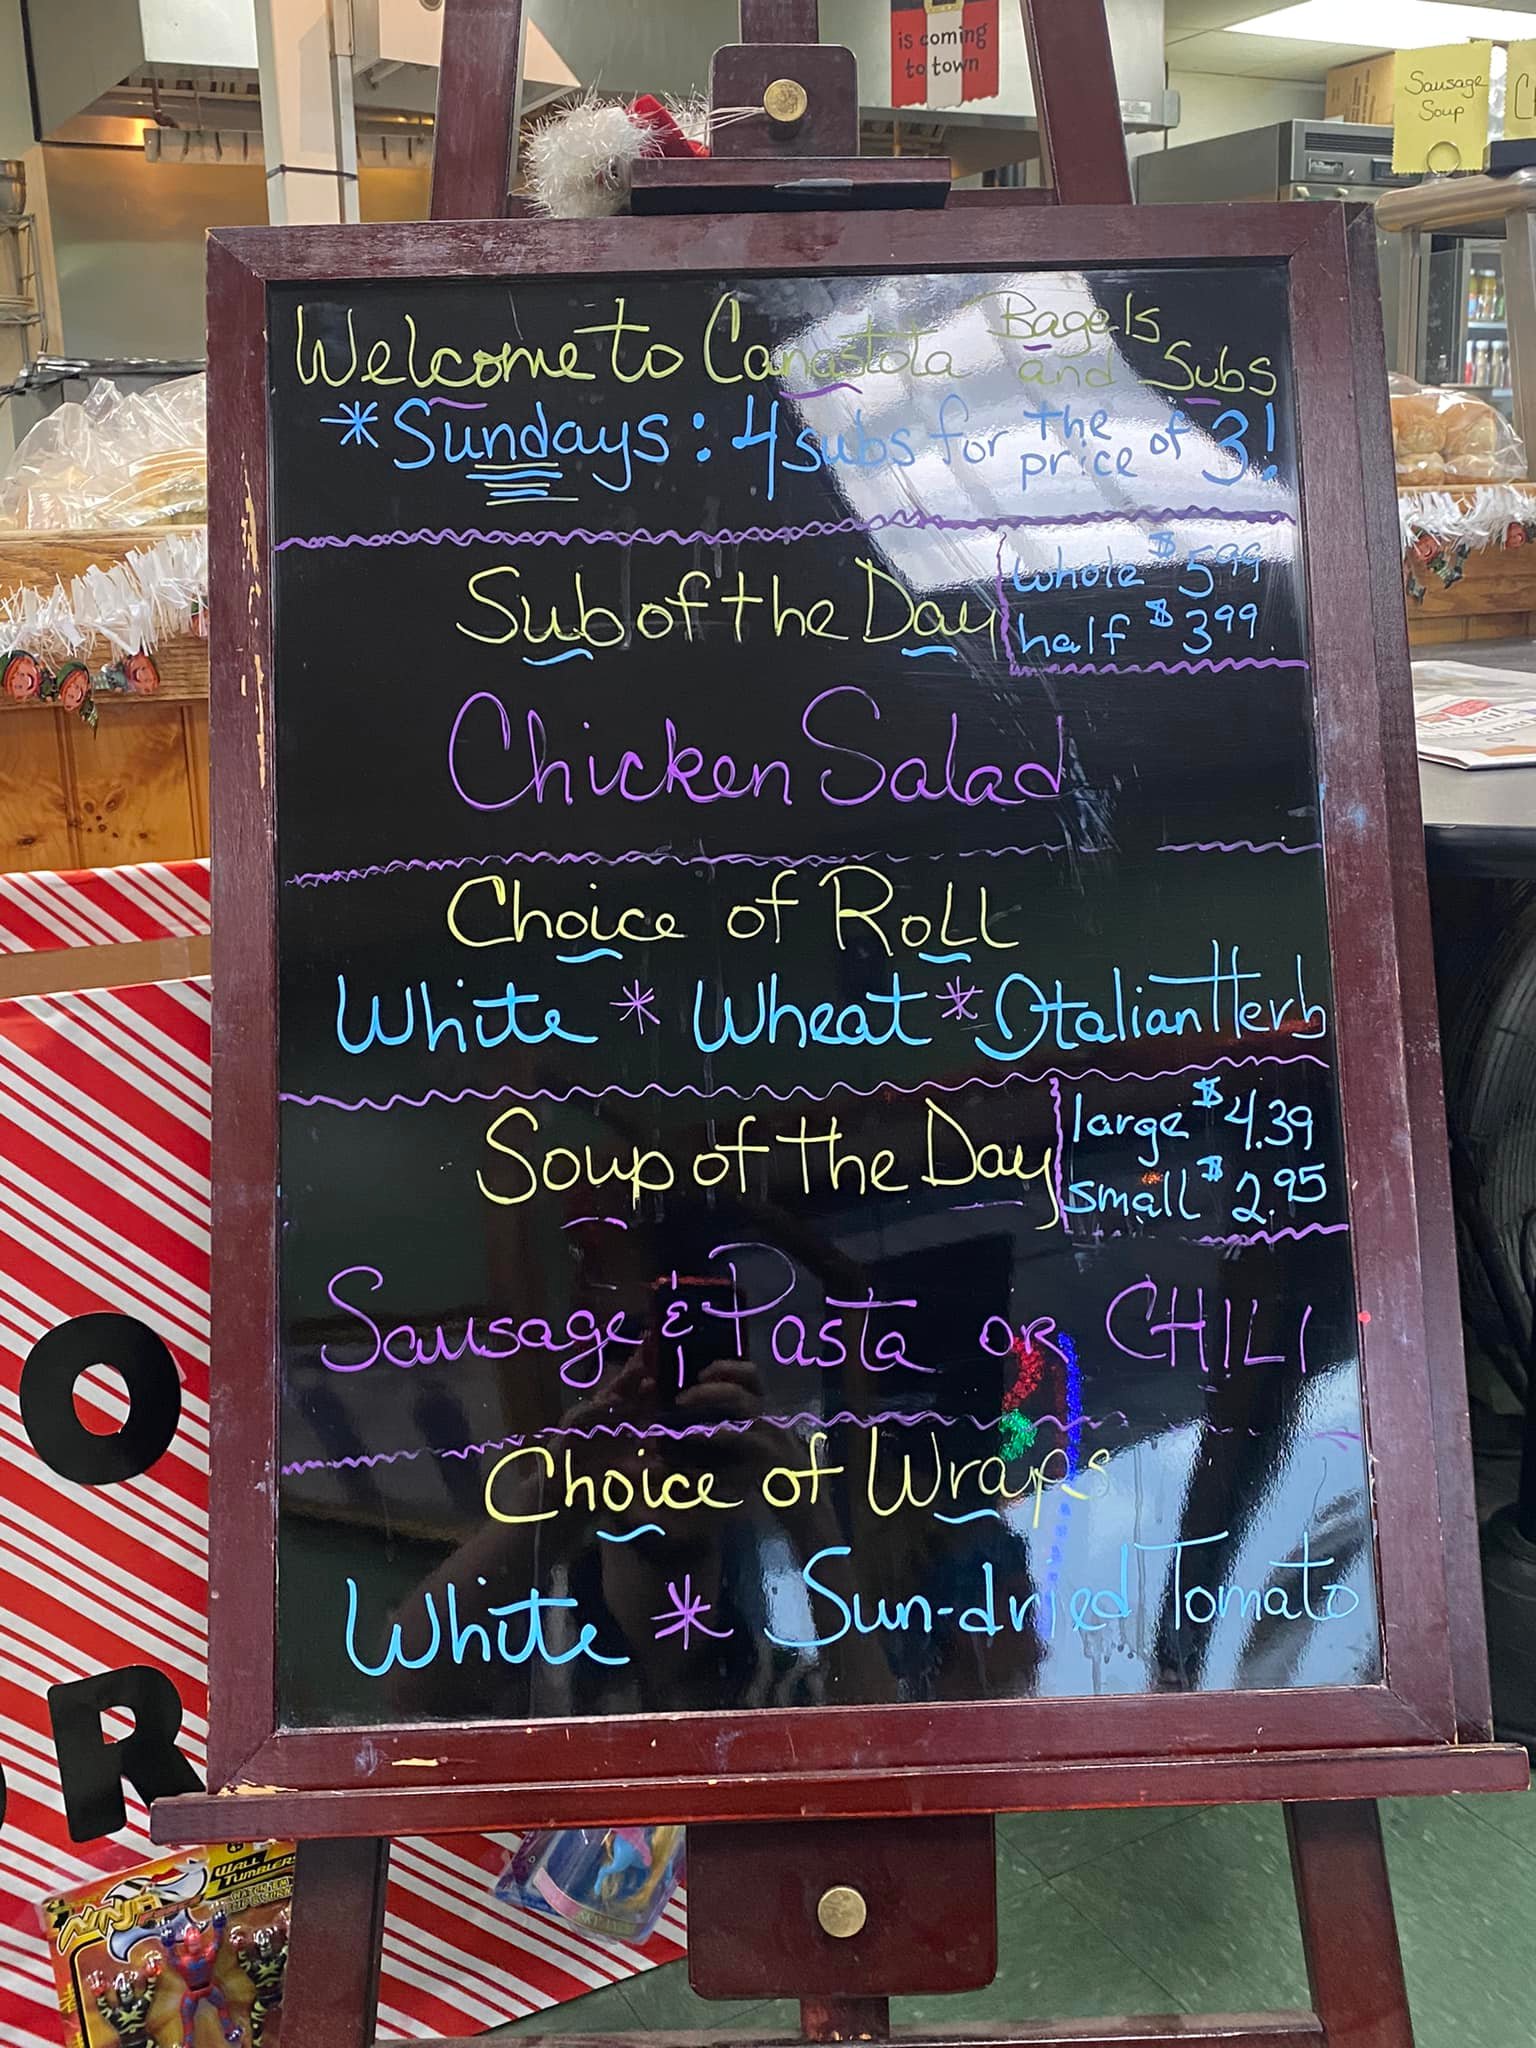 is coming
to town
Sausage
Soup
Welcome to Canastota Bagels and Subs
*Sundays: 4 subs for the price of 3!
Sub of the Day
whole $5.99
half $3.99
Chicken Salad
Choice of Roll
White * Wheat * Italian Herb
Soup of the Day
large $4.39
small $2.95
Sausage & Pasta or CHILI
Choice of Wraps
White * Sun-dried Tomato
O
R
WALL
TUMBLERS
NINJA